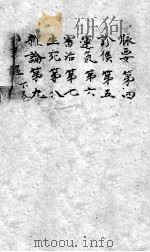 脉要第四
診候第五
運氣第六
審治第七
生死第八
雜論第九
www.mtoou.info